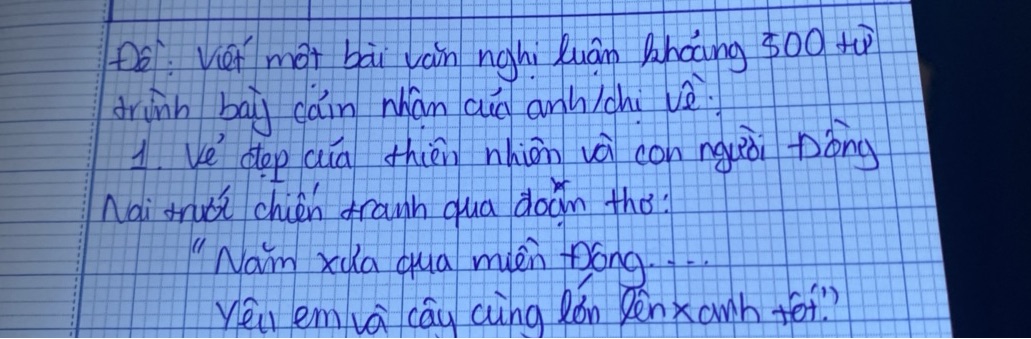 Đề: Viết một bài văn nghị luận khoảng 500 từ
trình bày cảm nhận của anh/chị về:
1. Vẻ đẹp của thiên nhiên và con người Đồng
Nai trước chiến tranh qua đoạn thơ:
"Năm xưa qua miền Đông....
Yêu em và cây cùng lớn lên xanh tốt."